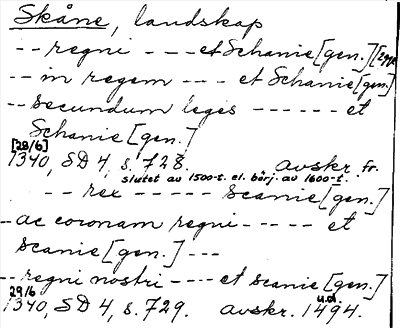 Skåne, landskap
-- regni --- et Schanie [gen.] [2 ggr]
-- in regem --- et Schanie [gen.]
-- secundum leges ------ et
Schanie [gen.]
[28/6]
1340, SD 4, s. 728. avskr. fr.
slutet av 1500-t. el. börj. av 1600-t.
-- rex ----- Scanie [gen.]
- ac coronam regni ----- et
Scanie [gen.] ---
-- regni nostri ---- et Scanie [gen.]
29/6 u.d.
1340, SD 4, s. 729. avskr. 1494.